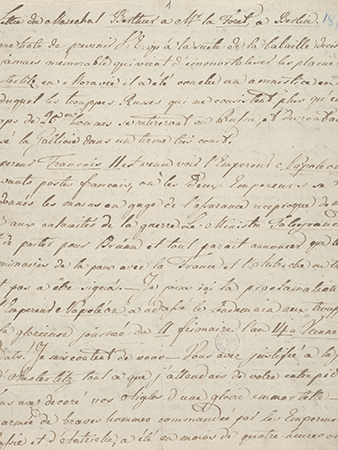 Lettre du Maréchal Berthier à Mr. la Foret, à Berlin.
me hate de prevenir V.E. qu'à la suite de la bataille décis
jamais memorable qui vient d'immortaliser les plaines
sterlitz en Moravie il a été conclu un armistice en
duquel les trouppes Russes qui ne consistent plus qu'en
ps de hommes se retireront en Russie et devront
sé la Gallicie dans un terme très court.
pereur François II est venu voir l'Empereur Napoléon
vants postes francois, où les deux Empereurs se
dans les mains en gage de l'assurance reciproque de
aux calamités de la guerre. Le Ministre Talleyrand
de partir pour Brünn et tout parait annoncer que
minaires de la paix avec la France et l'Autriche
pas à etre signés. Je joins ici la proclamation
l'Empereur Napoléon a adressé le lendemain aux troup
la glorieuse journée du 11 frimaire l'an 14
dats. Je suis content de vous. Vous avez justifié à la j
d'Austerlitz tout ce que j'attendais de votre intrépid
us avez decoré vos Aigles d'une gloire immortelle
armée de braves hommes commandée par les Empereur
ussie et d'Autriche, a été en moins de quatre heures ou